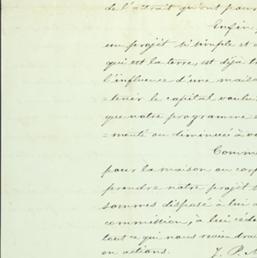 de l'attrait qu'ont pour
Enfin,
un projet si simple et
qui est la terre, est déjà
l'influence d'une maison
=tenir le capital voulu
que notre programme
=menté ou diminuée à vo
Comme
pour la maison ou corp
prendre notre projet
sommes disposé à lui
commission, à lui céde
tout ce qui nous revien drai
en actions. J. P.